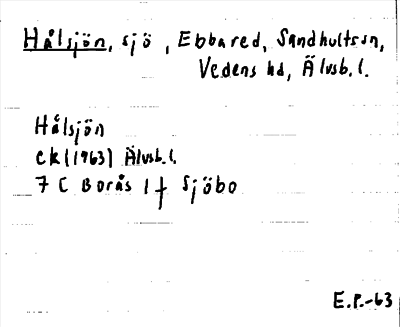 Hålsjön, sjö, Ebbared, Sandhultssn,
Vedens hd, Älvsb. l.
Hålsjön
ek (1963) Älvsb. l.
7 C Borås 1 f Sjöbo
E.P.-63